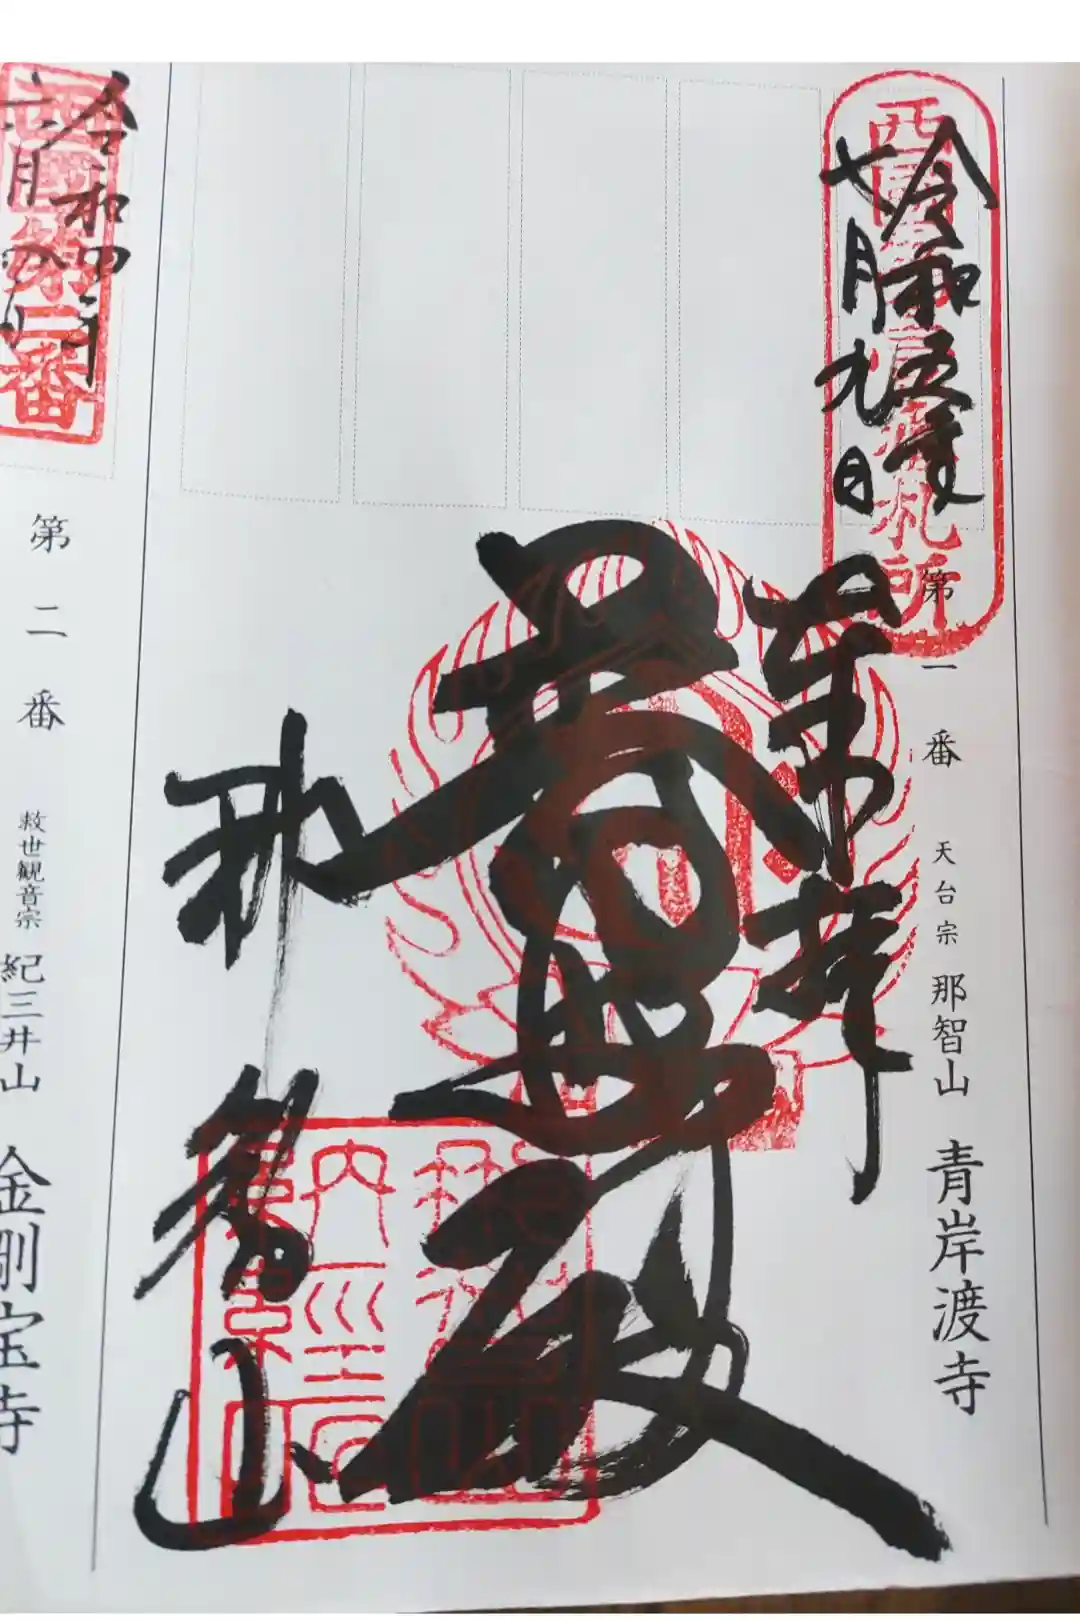 西国 札所
令和五年
七月九日
奉拝
普照殿
那智山
第一番 天台宗 那智山 青岸渡寺
西国第二番
令和四年
六月
第二番 救世観音宗 紀三井山 金剛宝寺